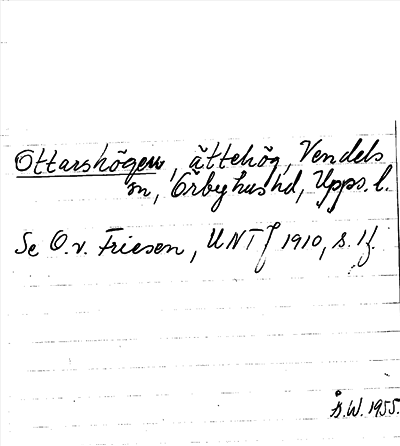 Ottarshögen, ättehög, Vendels
sn, Örbyhus hd, Upps. l.
Se O. v. Friesen, UNTf 1910, s. 1f.
Å.W. 1955.